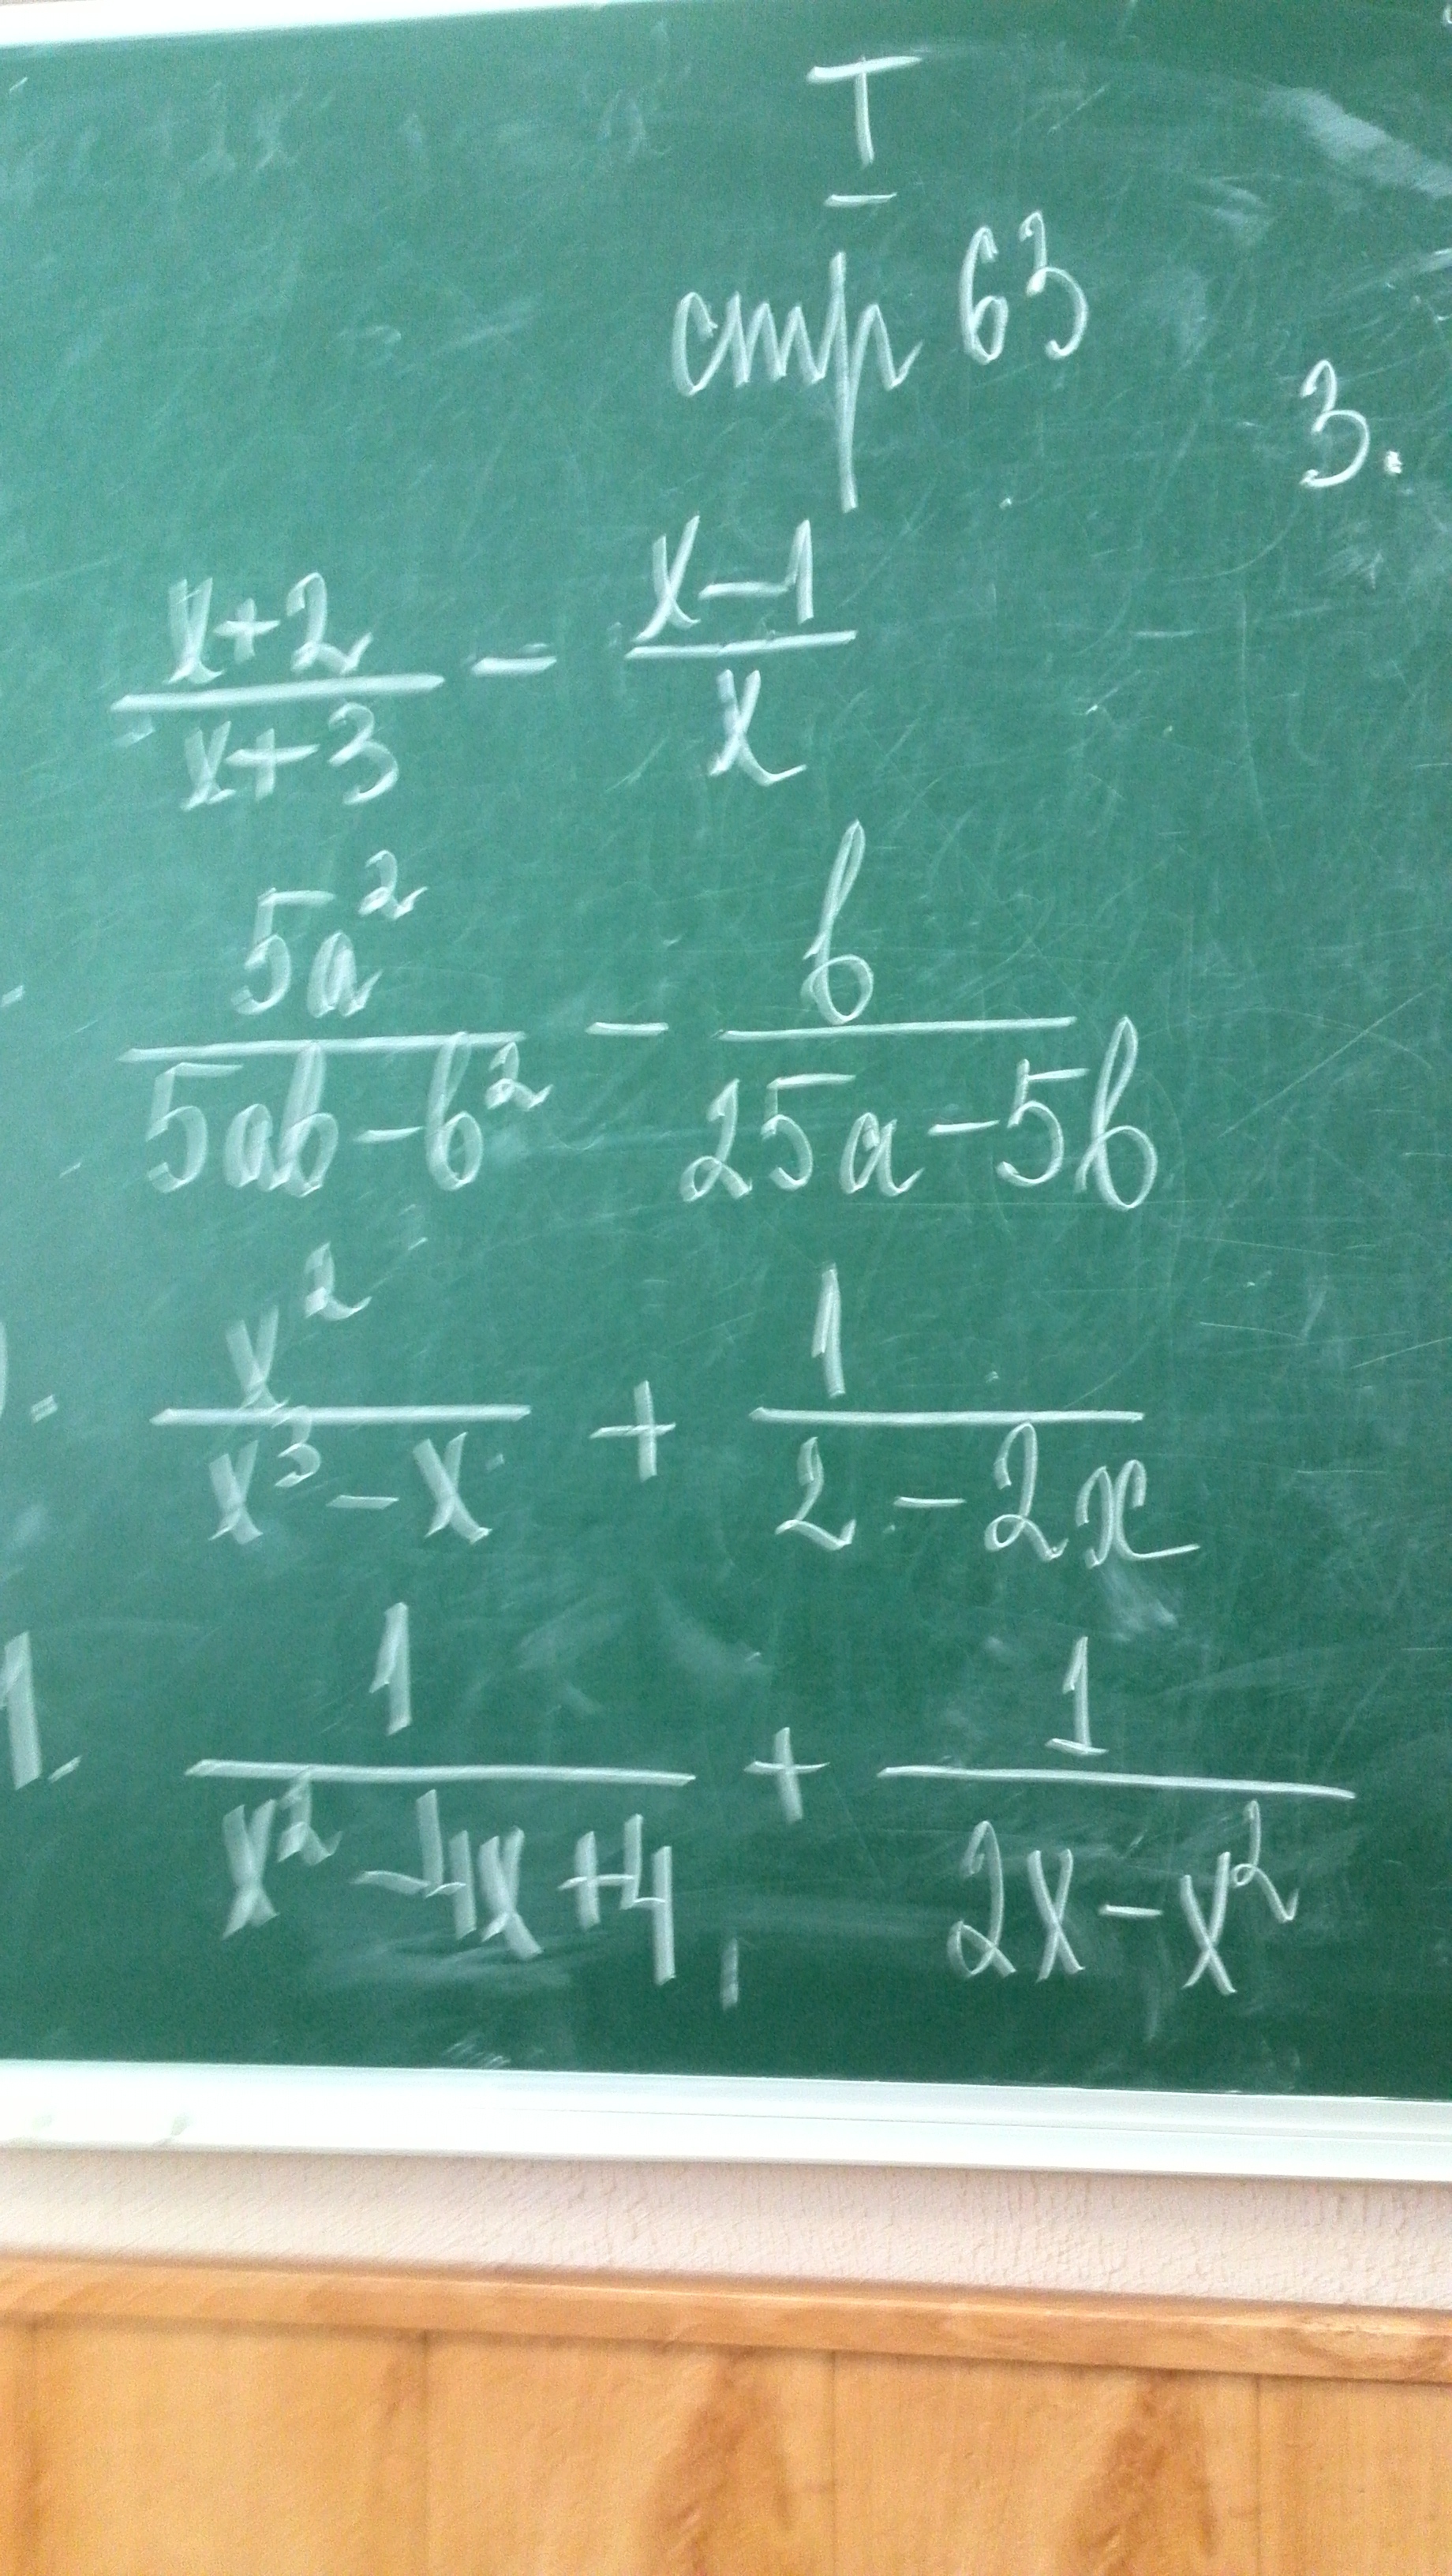 I
стр 63
3.
x+2/x+3 − x−1/x
5a²/5ab−b² − b/25a−5b
x²/x³−x + 1/2−2x
1. 1/x²−4x+4 + 1/2x−x²